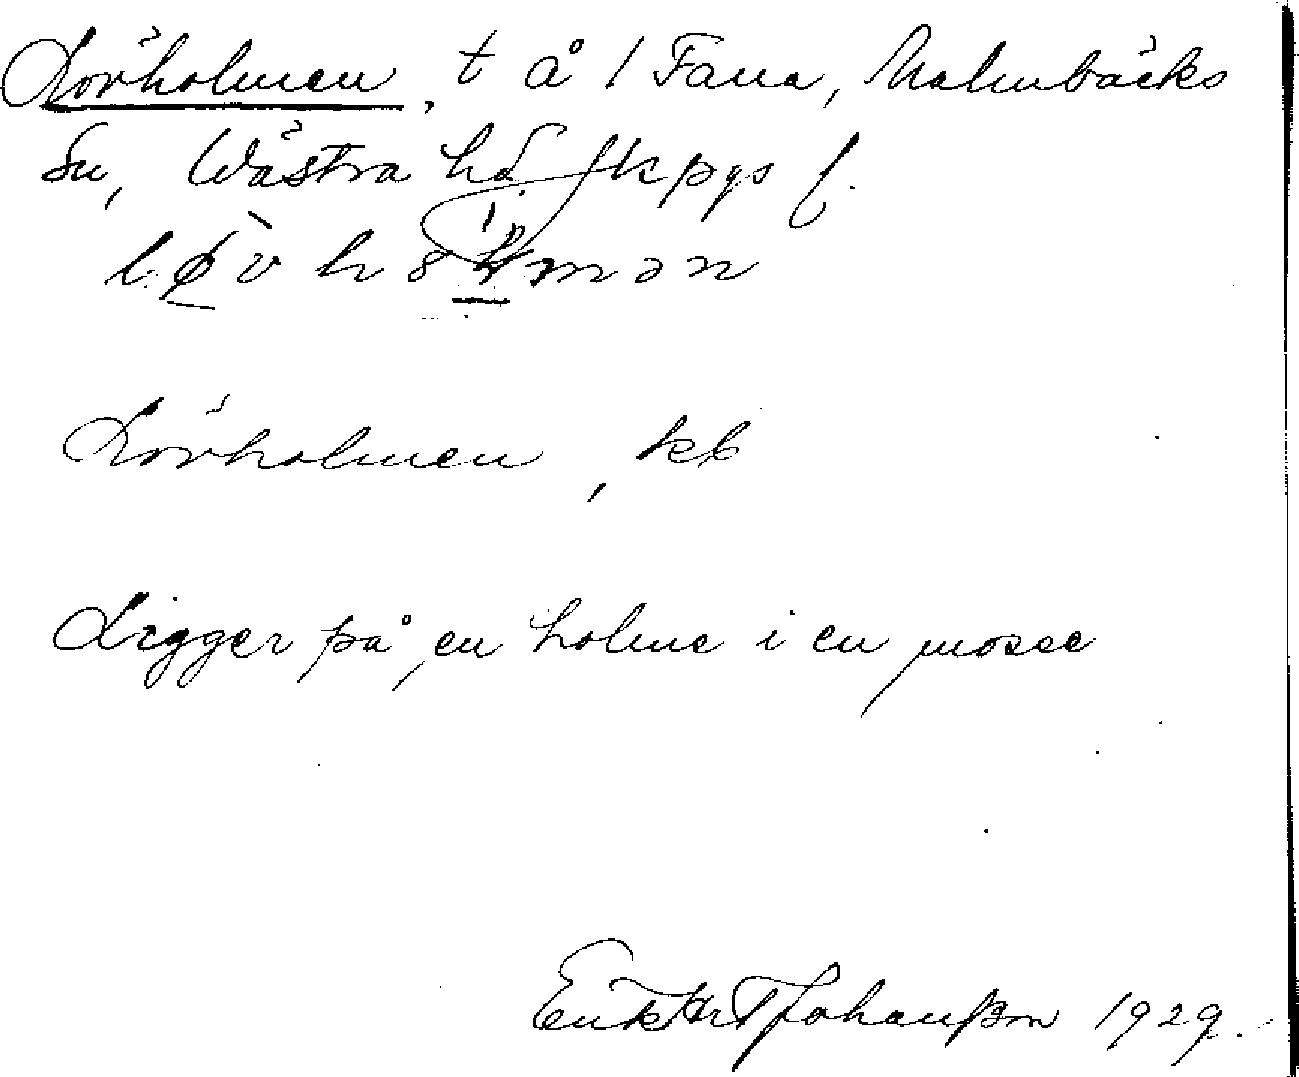 Lövholmen, t å 1 Fana, Malmbäcks
sn, Västra hd. Jkpgs l.
Lövholmen, kb
Ligger på en holme i en mosse
Johansson 1929.